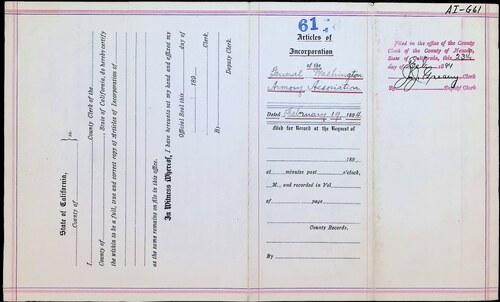 AI-G61
State of California,
County of } ss.
I, County Clerk of the
County of , State of California, do hereby certify
the within to be a full, true and correct copy of Articles of Incorporation of
as the same remains on file in this office.
In Witness Whereof, I have hereunto set my hand and affixed my
Official Seal this day of
189
Clerk.
By
Deputy Clerk.
61
Articles of
Incorporation
of the
General Washington
Armory Association
Dated February 19, 1894
filed for Record at the Request of
189
at minutes past o'clock,
M., and recorded in Vol.
of page
County Records.
By
Filed in the office of the County
Clerk of the County of
State of California, this 23d
day of 189
Clerk
By Deputy Clerk